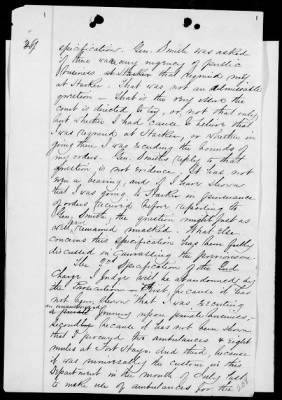 28
specification. Gen. Smith was asked
if there was any urgency of public
business at Harker that required my
at Harker. That was not an admissible
question – That is the very issue the
court is directed to try, or, not that only,
but whether I had cause to believe that
I was required at Harker, or whether in
going there I was exceeding the bounds of
my orders. Gen. Smith's reply to that
question is not evidence. It has not
a bearing, and if I have shown
that I was going to Harker in pursuance
of orders received before reporting to
Gen. Smith, the question might just as
well remained unasked. What else
concerns this specification has been fully
discussed in canvassing the previous one.
The 2nd Specification of the 2nd
Charge I judge will be abandoned by
the Prosecution – First because it has
not been shown that I was executing
an unauthorized
a private journey upon private business,–
second because it has not been shown
that I procured two ambulances & eight
mules at Fort Hays. And third, because
it was universally the custom in this
Department in the month of July last
to make use of ambulances for the